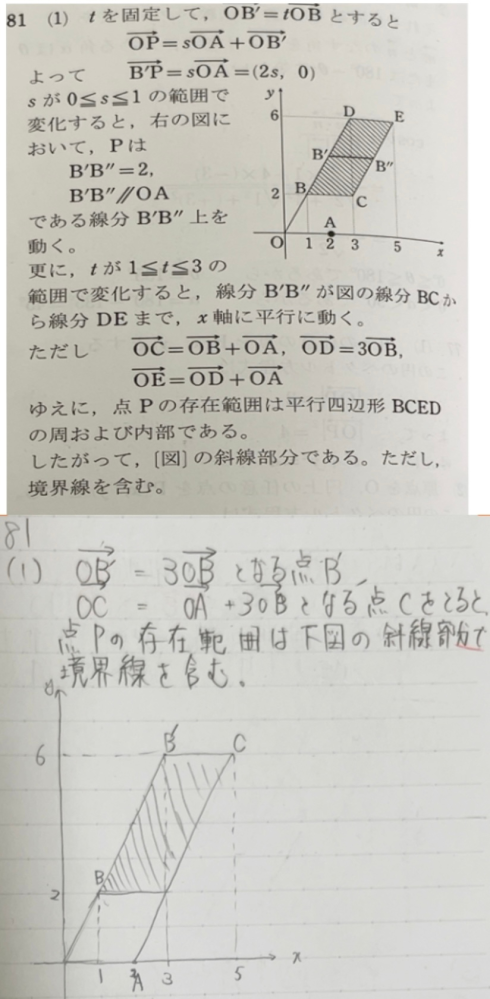 81 (1) tを固定して，OB′＝tOBとすると
OP＝sOA＋OB′
よって B′P＝sOA＝(2s, 0)
sが0≦s≦1の範囲で
変化すると，右の図に
おいて，Pは
B′B″＝2，
B′B″∥OA
である線分B′B″上を
動く。
更に，tが1≦t≦3の
範囲で変化すると，線分B′B″が図の線分BCか
ら線分DEまで，x軸に平行に動く。
ただし OC＝OB＋OA，OD＝3OB，
OE＝OD＋OA
ゆえに，点Pの存在範囲は平行四辺形BCED
の周および内部である。
したがって，[図]の斜線部分である。ただし，
境界線を含む。
y
6
D
E
B′
B″
2
B
C
A
O
1
2
3
5
x
81
(1) OB′ = 3OB となる点B′,
OC = OA + 3OB となる点Cをとると，
点Pの存在範囲は下図の斜線部分で
境界線を含む。
y
6
B′
C
B
2
1
2
A
3
5
x